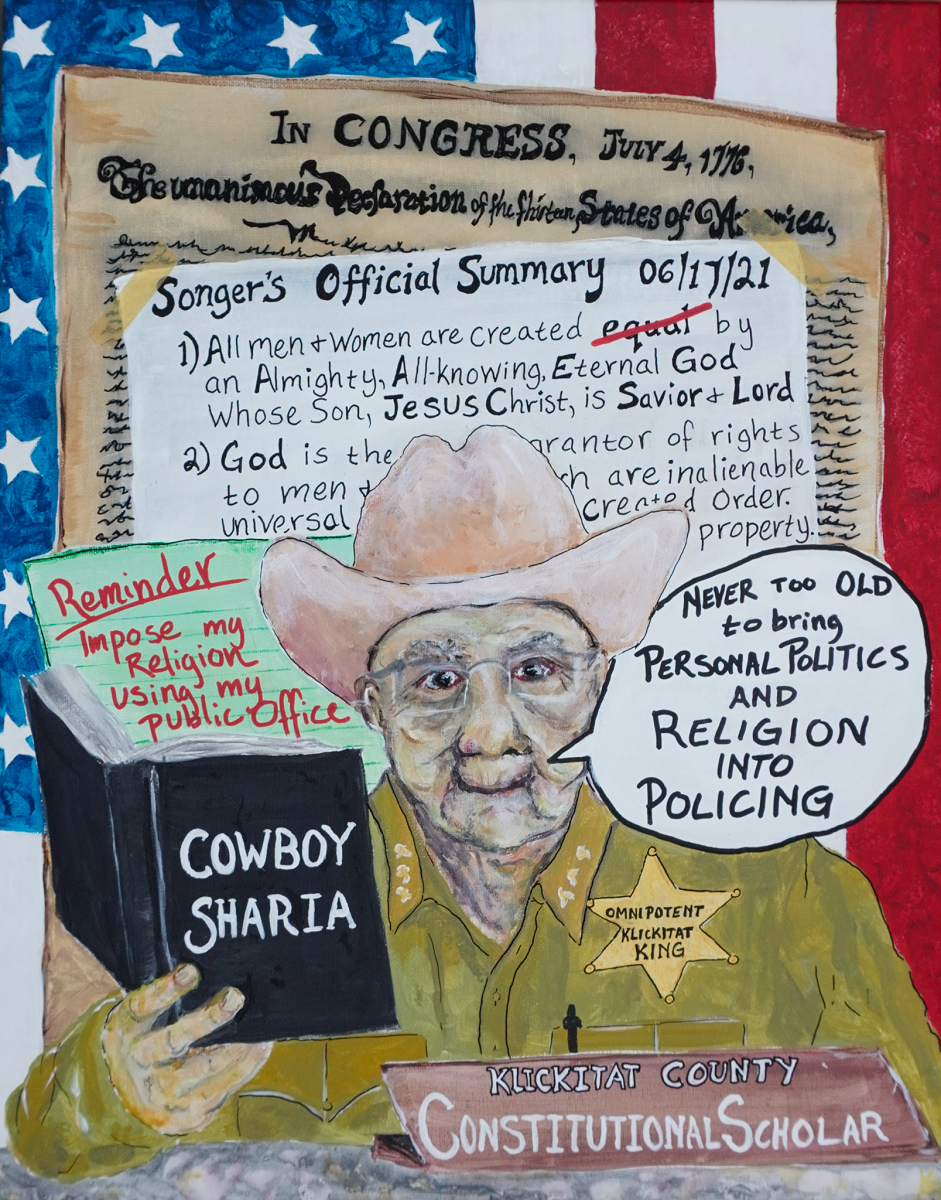 IN CONGRESS, JULY 4, 1776,
The unanimous Declaration of the thirteen States of America,
Songer's Official Summary 06/17/21
1) All men + Women are created equal by
an Almighty, All-knowing, Eternal God
Whose Son, Jesus Christ, is Savior + Lord
2) God is the grantor of rights
to men are inalienable
universal created order.
property.
Reminder
Impose my
Religion
using my
public Office
NEVER TOO OLD
to bring
PERSONAL POLITICS
AND
RELIGION
INTO
POLICING
COWBOY
SHARIA
OMNIPOTENT
KLICKITAT
KING
KLICKITAT COUNTY
CONSTITUTIONAL SCHOLAR